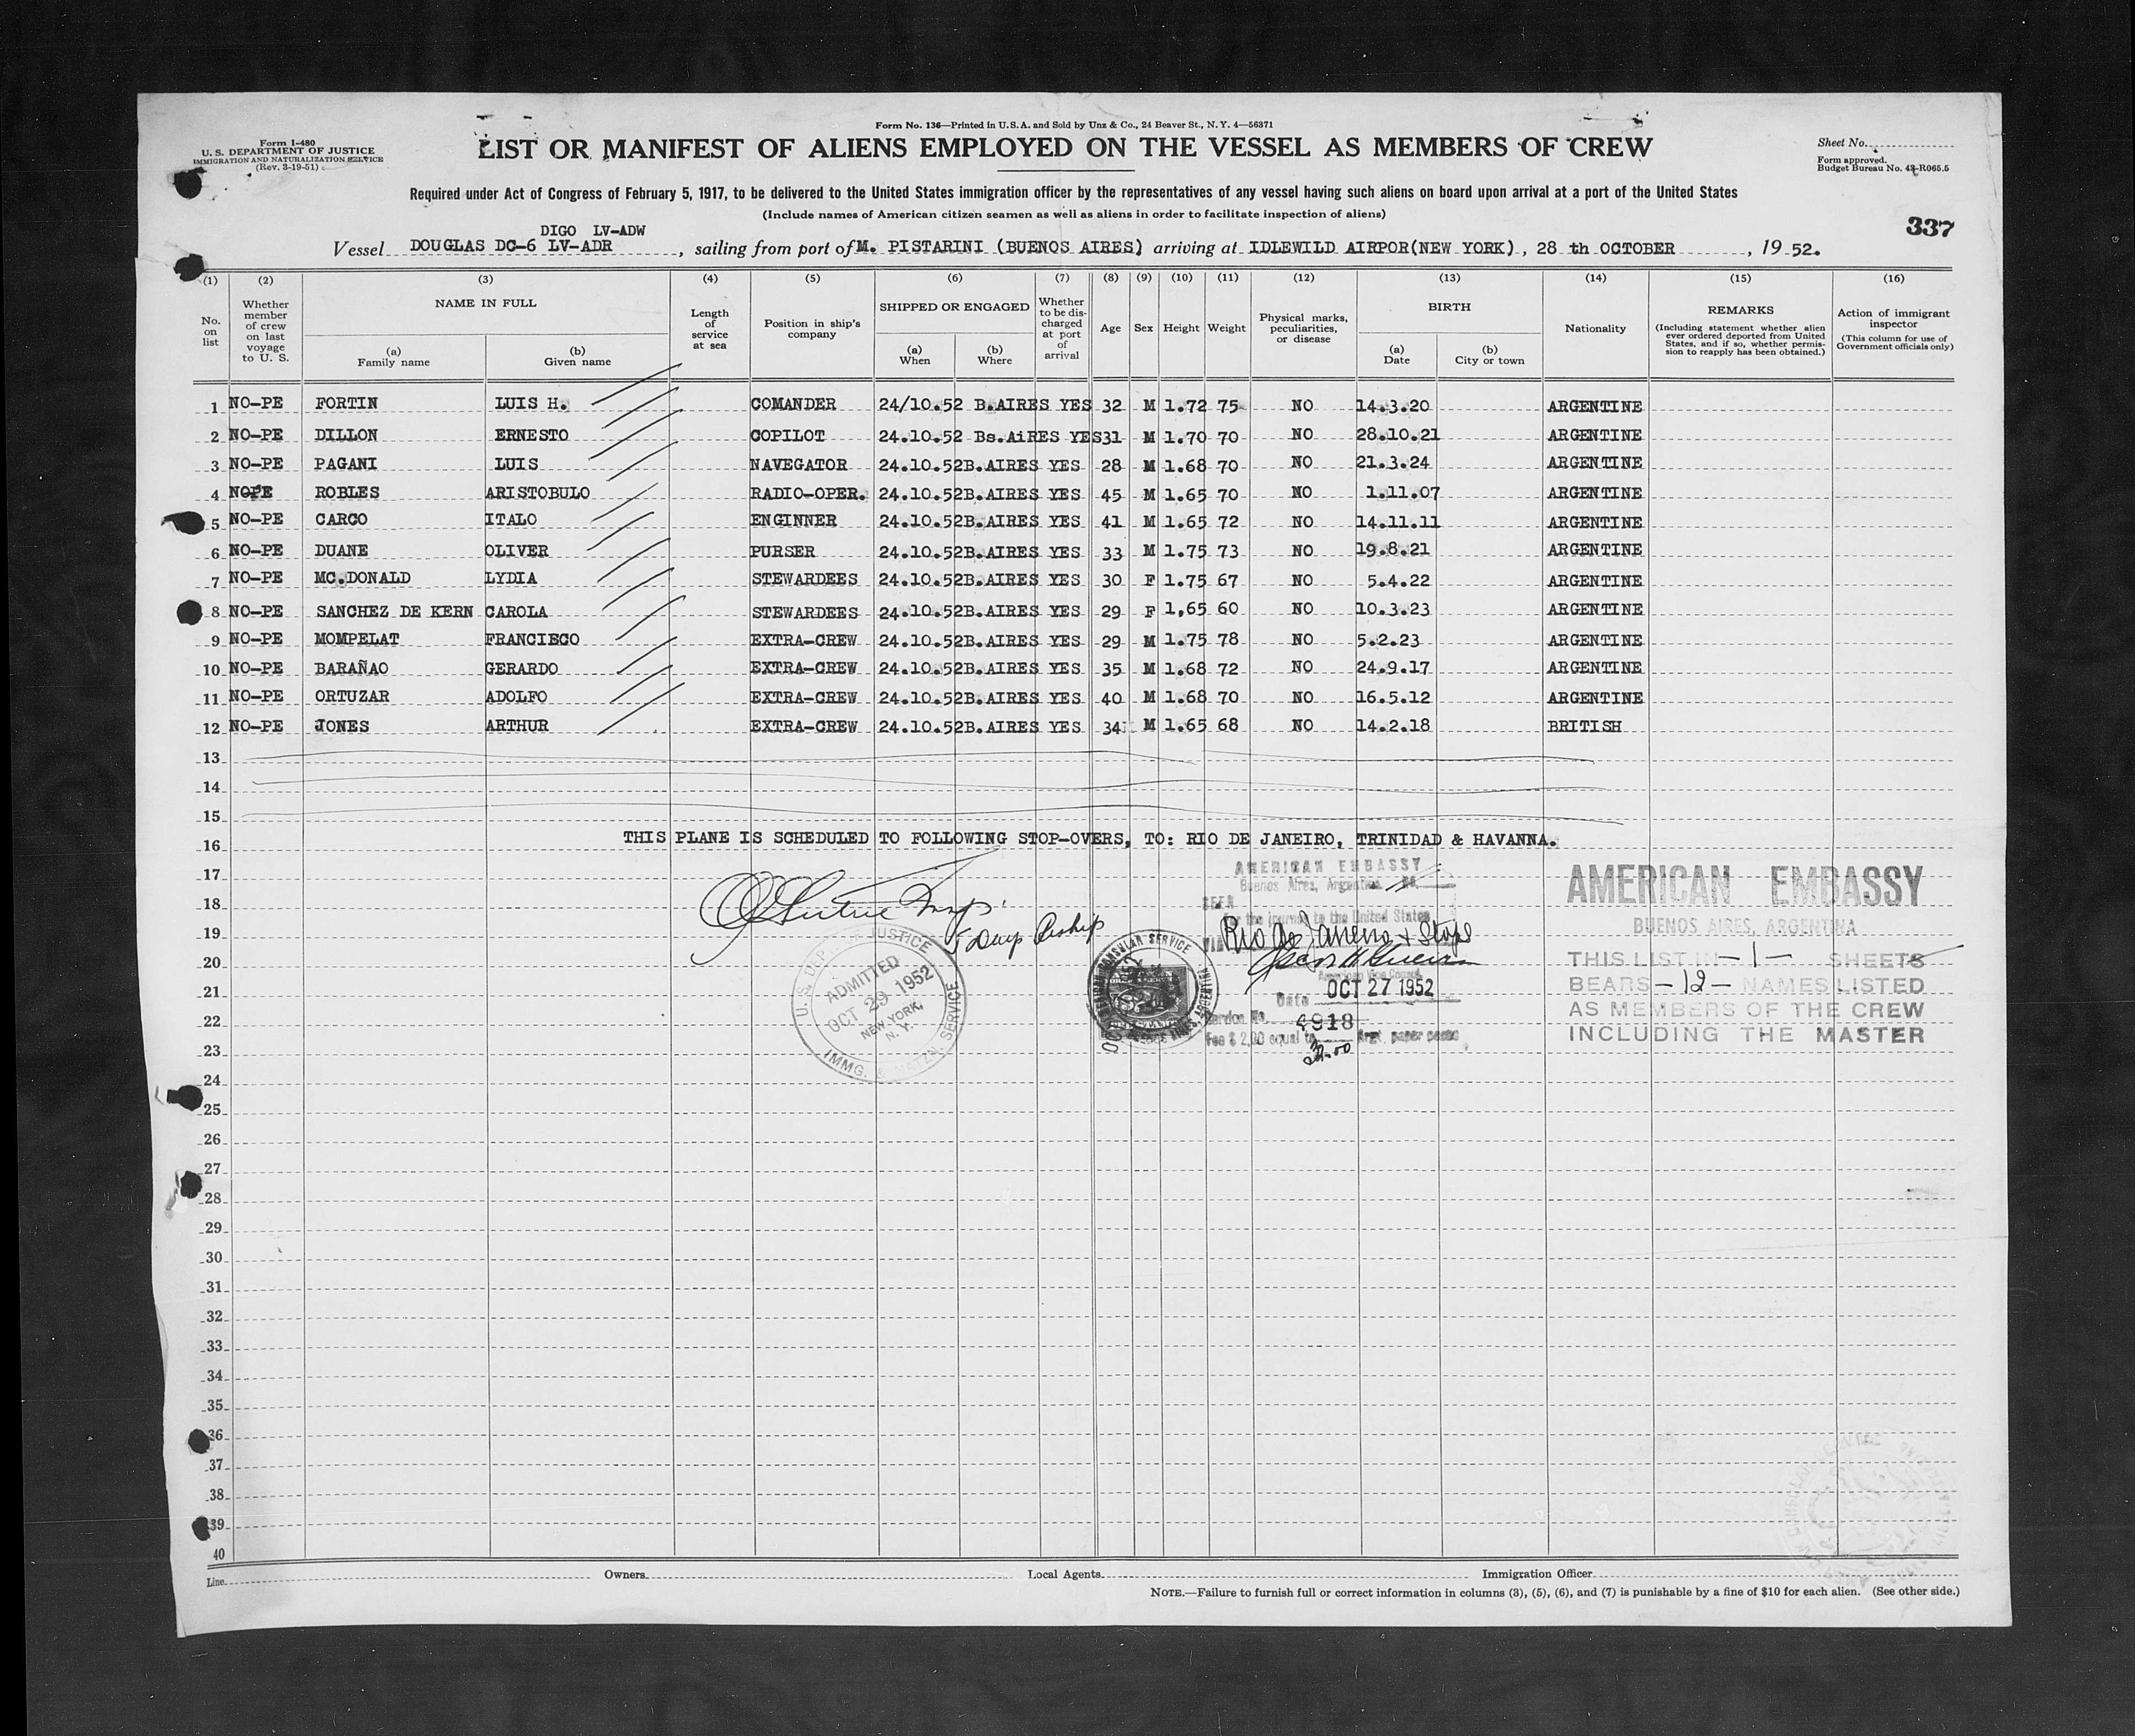 Form No. 136—Printed in U.S.A. and Sold by Unz & Co., 24 Beaver St., N.Y. 4—56371
Form I-480
U. S. DEPARTMENT OF JUSTICE
IMMIGRATION AND NATURALIZATION SERVICE
(Rev. 3-19-51)
LIST OR MANIFEST OF ALIENS EMPLOYED ON THE VESSEL AS MEMBERS OF CREW
Sheet No.
Form approved.
Budget Bureau No. 43-R065.5
Required under Act of Congress of February 5, 1917, to be delivered to the United States immigration officer by the representatives of any vessel having such aliens on board upon arrival at a port of the United States
(Include names of American citizen seamen as well as aliens in order to facilitate inspection of aliens)
337
DIGO LV-ADW
Vessel DOUGLAS DC-6 LV-ADR , sailing from port of M. PISTARINI (BUENOS AIRES) arriving at IDLEWILD AIRPOR(NEW YORK) , 28 th OCTOBER , 19 52.
(1) (2) (3) (4) (5) (6) (7) (8) (9) (10) (11) (12) (13) (14) (15) (16)
No. on list
Whether member of crew on last voyage to U. S.
NAME IN FULL
(a) Family name
(b) Given name
Length of service at sea
Position in ship's company
SHIPPED OR ENGAGED
(a) When
(b) Where
Whether to be discharged at port of arrival
Age
Sex
Height
Weight
Physical marks, peculiarities, or disease
BIRTH
(a) Date
(b) City or town
Nationality
REMARKS
(Including statement whether alien ever ordered deported from United States, and if so, whether permission to reapply has been obtained.)
Action of immigrant inspector
(This column for use of Government officials only)
1 NO-PE FORTIN LUIS H. COMANDER 24/10.52 B.AIRES YES 32 M 1.72 75 NO 14.3.20 ARGENTINE
2 NO-PE DILLON ERNESTO COPILOT 24.10.52 Bs.AiRES YES 31 M 1.70 70 NO 28.10.21 ARGENTINE
3 NO-PE PAGANI LUIS NAVEGATOR 24.10.52 B.AIRES YES 28 M 1.68 70 NO 21.3.24 ARGENTINE
4 NOPE ROBLES ARISTOBULO RADIO-OPER. 24.10.52 B.AIRES YES 45 M 1.65 70 NO 1.11.07 ARGENTINE
5 NO-PE CARCO ITALO ENGINNER 24.10.52 B.AIRES YES 41 M 1.65 72 NO 14.11.11 ARGENTINE
6 NO-PE DUANE OLIVER PURSER 24.10.52 B.AIRES YES 33 M 1.75 73 NO 19.8.21 ARGENTINE
7 NO-PE MC.DONALD LYDIA STEWARDEES 24.10.52 B.AIRES YES 30 F 1.75 67 NO 5.4.22 ARGENTINE
8 NO-PE SANCHEZ DE KERN CAROLA STEWARDEES 24.10.52 B.AIRES YES 29 F 1,65 60 NO 10.3.23 ARGENTINE
9 NO-PE MOMPELAT FRANCISCO EXTRA-CREW 24.10.52 B.AIRES YES 29 M 1.75 78 NO 5.2.23 ARGENTINE
10 NO-PE BARAÑAO GERARDO EXTRA-CREW 24.10.52 B.AIRES YES 35 M 1.68 72 NO 24.9.17 ARGENTINE
11 NO-PE ORTUZAR ADOLFO EXTRA-CREW 24.10.52 B.AIRES YES 40 M 1.68 70 NO 16.5.12 ARGENTINE
12 NO-PE JONES ARTHUR EXTRA-CREW 24.10.52 B.AIRES YES 34 M 1.65 68 NO 14.2.18 BRITISH
13
14
15
16 THIS PLANE IS SCHEDULED TO FOLLOWING STOP-OVERS, TO: RIO DE JANEIRO, TRINIDAD & HAVANNA.
17
18
19
20
21
22
23
24
25
26
27
28
29
30
31
32
33
34
35
36
37
38
39
40
U. S. DEPT. OF JUSTICE
ADMITTED
OCT 29 1952
NEW YORK, N. Y.
IMMG. & NATZN. SERVICE
AMERICAN EMBASSY
Buenos Aires, Argentina
SEEN
For the journey to the United States
VIA Rio de Janeiro + Stops
American Vice Consul
Date OCT 27 1952
Service No. 4918
Fee $ 2.00 equal to Argt. paper pesos
AMERICAN EMBASSY
BUENOS AIRES, ARGENTINA
THIS LIST IN -1- SHEETS
BEARS -12- NAMES LISTED
AS MEMBERS OF THE CREW
INCLUDING THE MASTER
Line
Owners
Local Agents
Immigration Officer
NOTE.—Failure to furnish full or correct information in columns (3), (5), (6), and (7) is punishable by a fine of $10 for each alien. (See other side.)